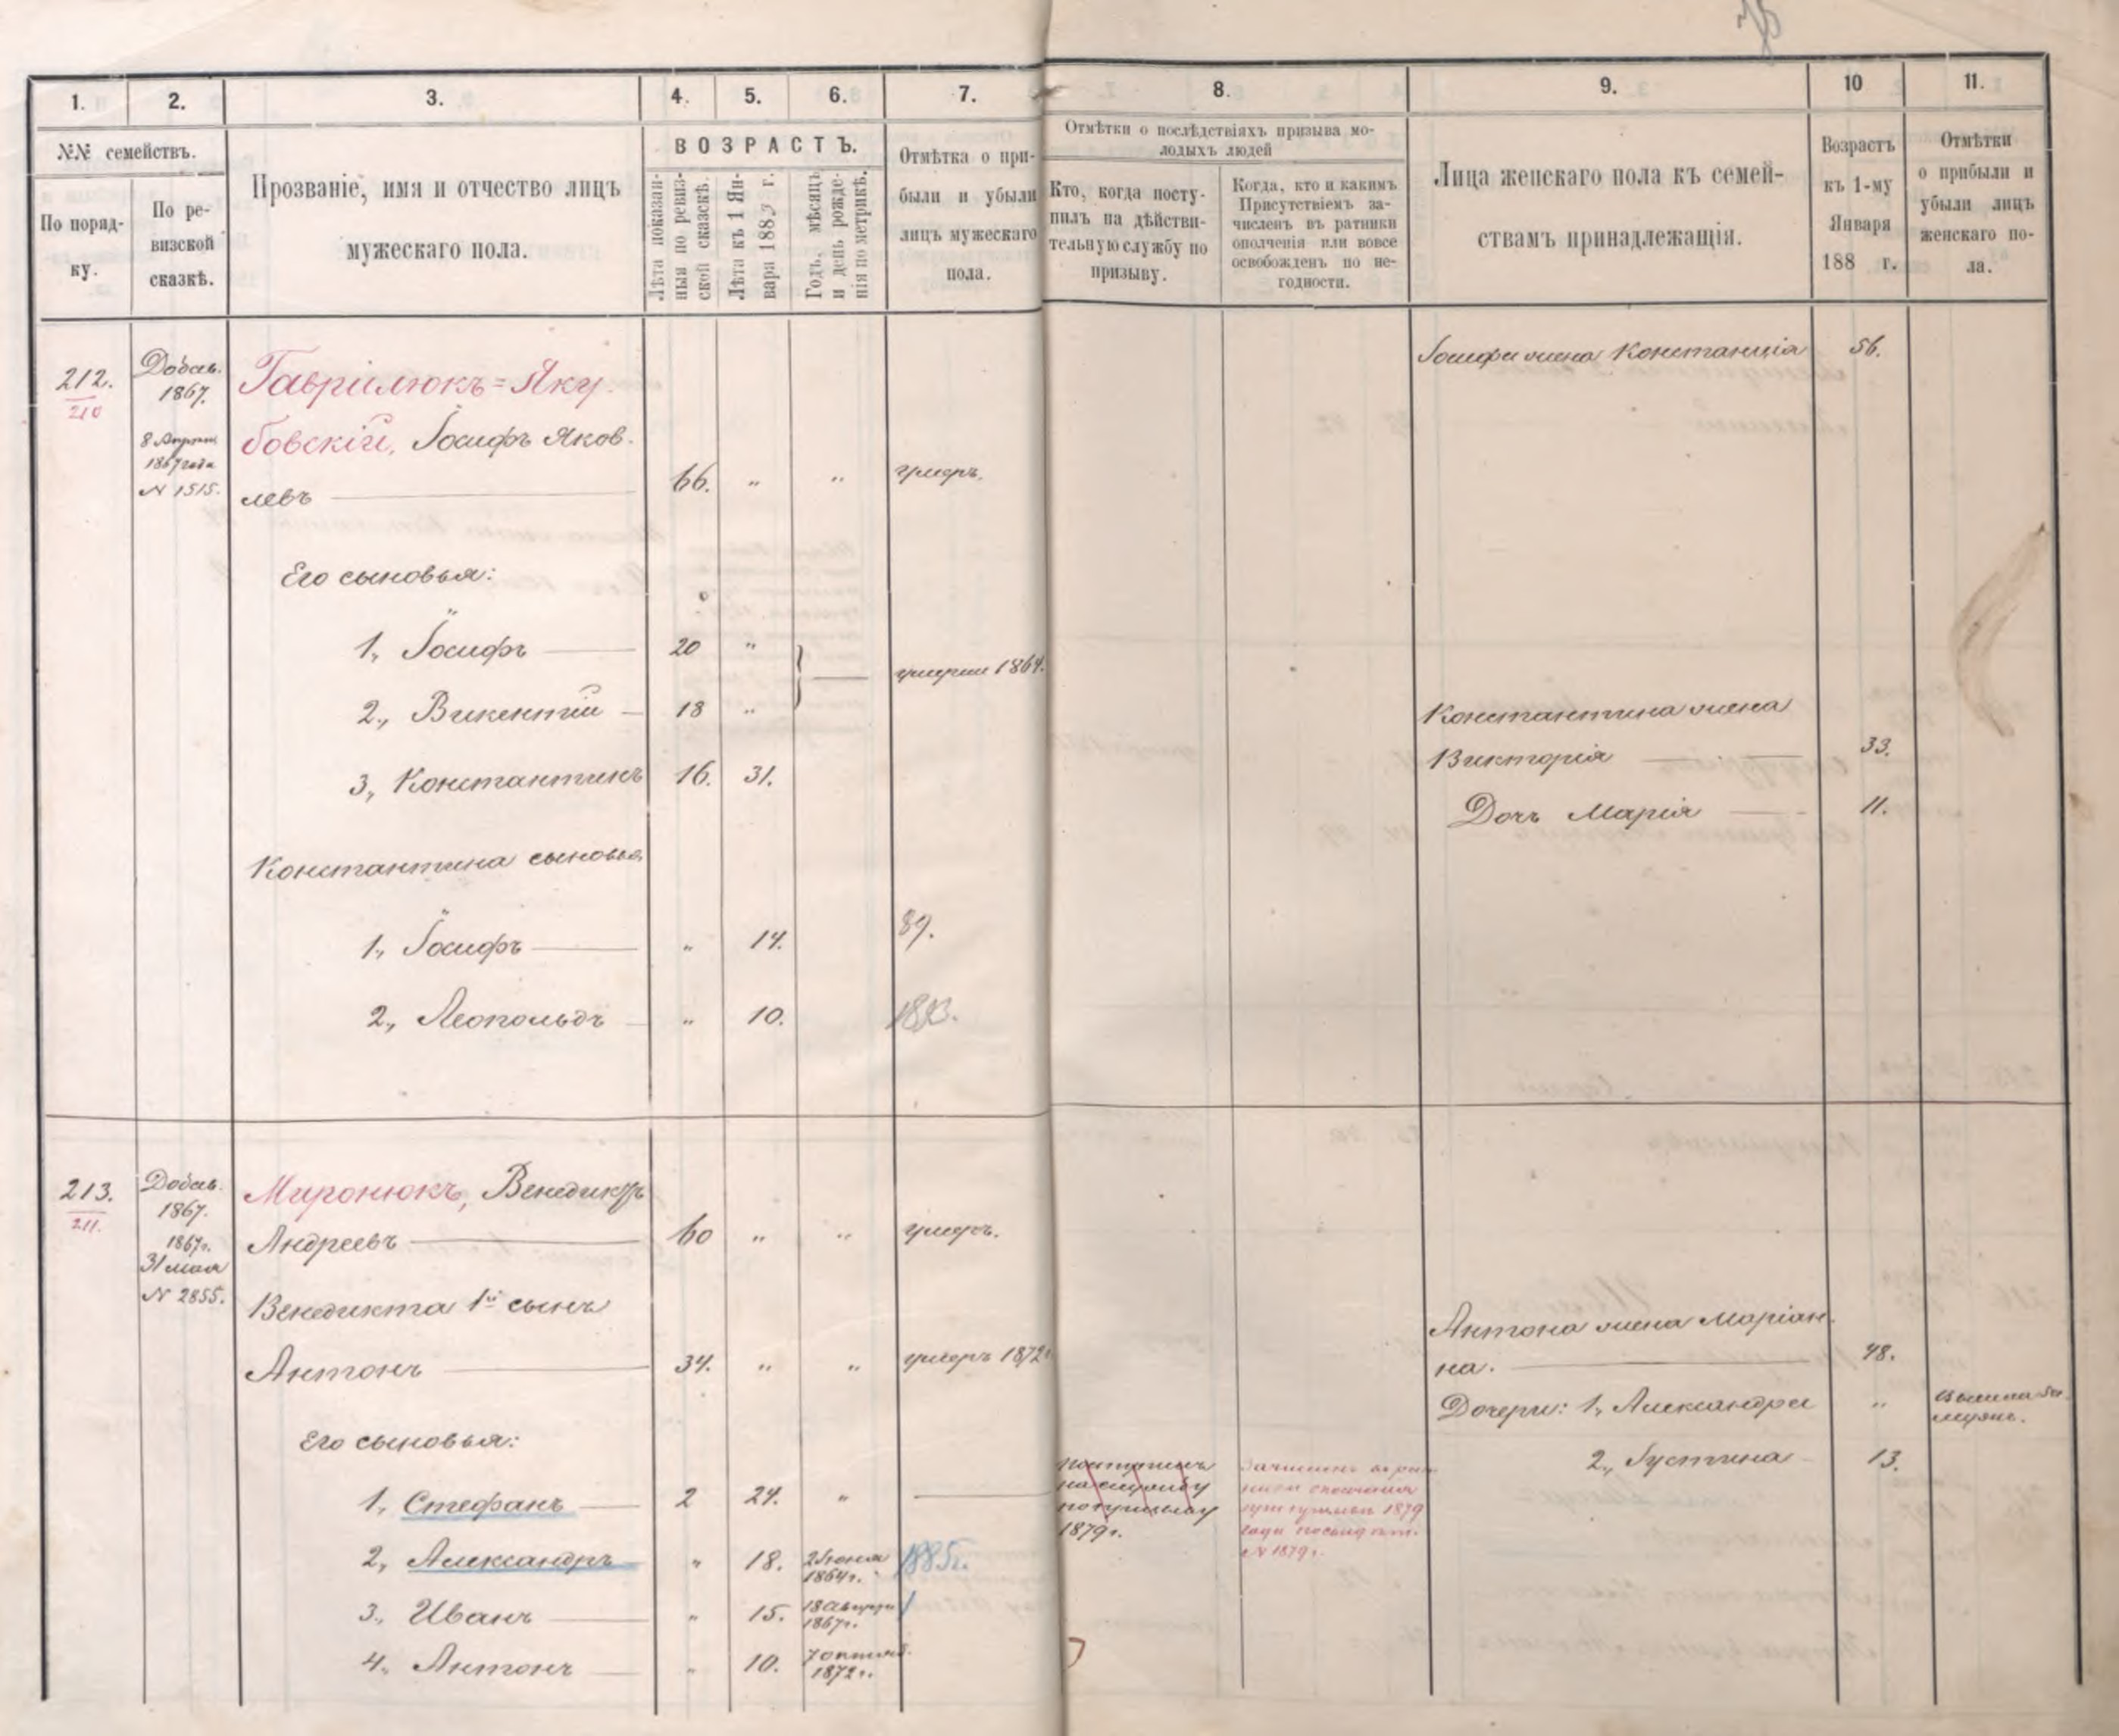 1.
2.
3.
4.
5.
6.
7.
8.
9.
10
11.
№№ семействъ.
По поряд-
ку.
По ре-
визской
сказкѣ.
Прозваніе, имя и отчество лицъ
мужескаго пола.
ВОЗРАСТЪ.
Лѣта показан-
ныя по ревиз-
ской сказкѣ.
Лѣта къ 1 Ян-
варя 1883 г.
Годъ, мѣсяцъ
и день рожде-
нія по метрикѣ.
Отмѣтка о при-
были и убыли
лицъ мужескаго
пола.
Отмѣтки о послѣдствіяхъ призыва мо-
лодыхъ людей
Кто, когда посту-
пилъ на дѣйстви-
тельную службу по
призыву.
Когда, кто и какимъ
Присутствіемъ за-
численъ въ ратники
ополченія или вовсе
освобожденъ по не-
годности.
Лица женскаго пола къ семей-
ствамъ принадлежащія.
Возрастъ
къ 1-му
Января
188 г.
Отмѣтки
о прибыли и
убыли лицъ
женскаго по-
ла.
212.
210
Добав.
1867.
8 Апрѣля
1867 года
N 1515.
Гаврілюкъ=Яку
бовскій, Іосифъ Яков-
левъ
66. " " умеръ.
Іосифа жена Констанція 56.
Его сыновья:
1., Іосифъ 20 "
умерли 1864.
2., Викентій 18 "
3., Константинъ 16. 31.
Константина жена
Викторія 33.
Дочь Марія 11.
Константина сыновья
1., Іосифъ " 14. 89.
2., Леопольдъ " 10. 1893.
213.
211.
Добав.
1867.
1867г.
31 мая
N 2855.
Миронюкъ, Венедиктъ
Андреевъ 60 " " умеръ.
Венедикта 1й сынъ
Антонъ 34. " " умеръ 1872г.
Антона жена Маріан-
на. 48.
Его сыновья:
Дочери: 1., Александра " вышла за-
мужъ.
2., Іустина 13.
1., Стефанъ 2 24. "
поступилъ
на службу
по призыву
1879г.
Зачисленъ в рат
ники ополченія
1879
года
N 1879г.
2., Александръ " 18. 2 Іюня
1864г. 1885г.
3., Иванъ " 15. 18 Августа
1867г.
4., Антонъ " 10. 7 октяб.
1872г.